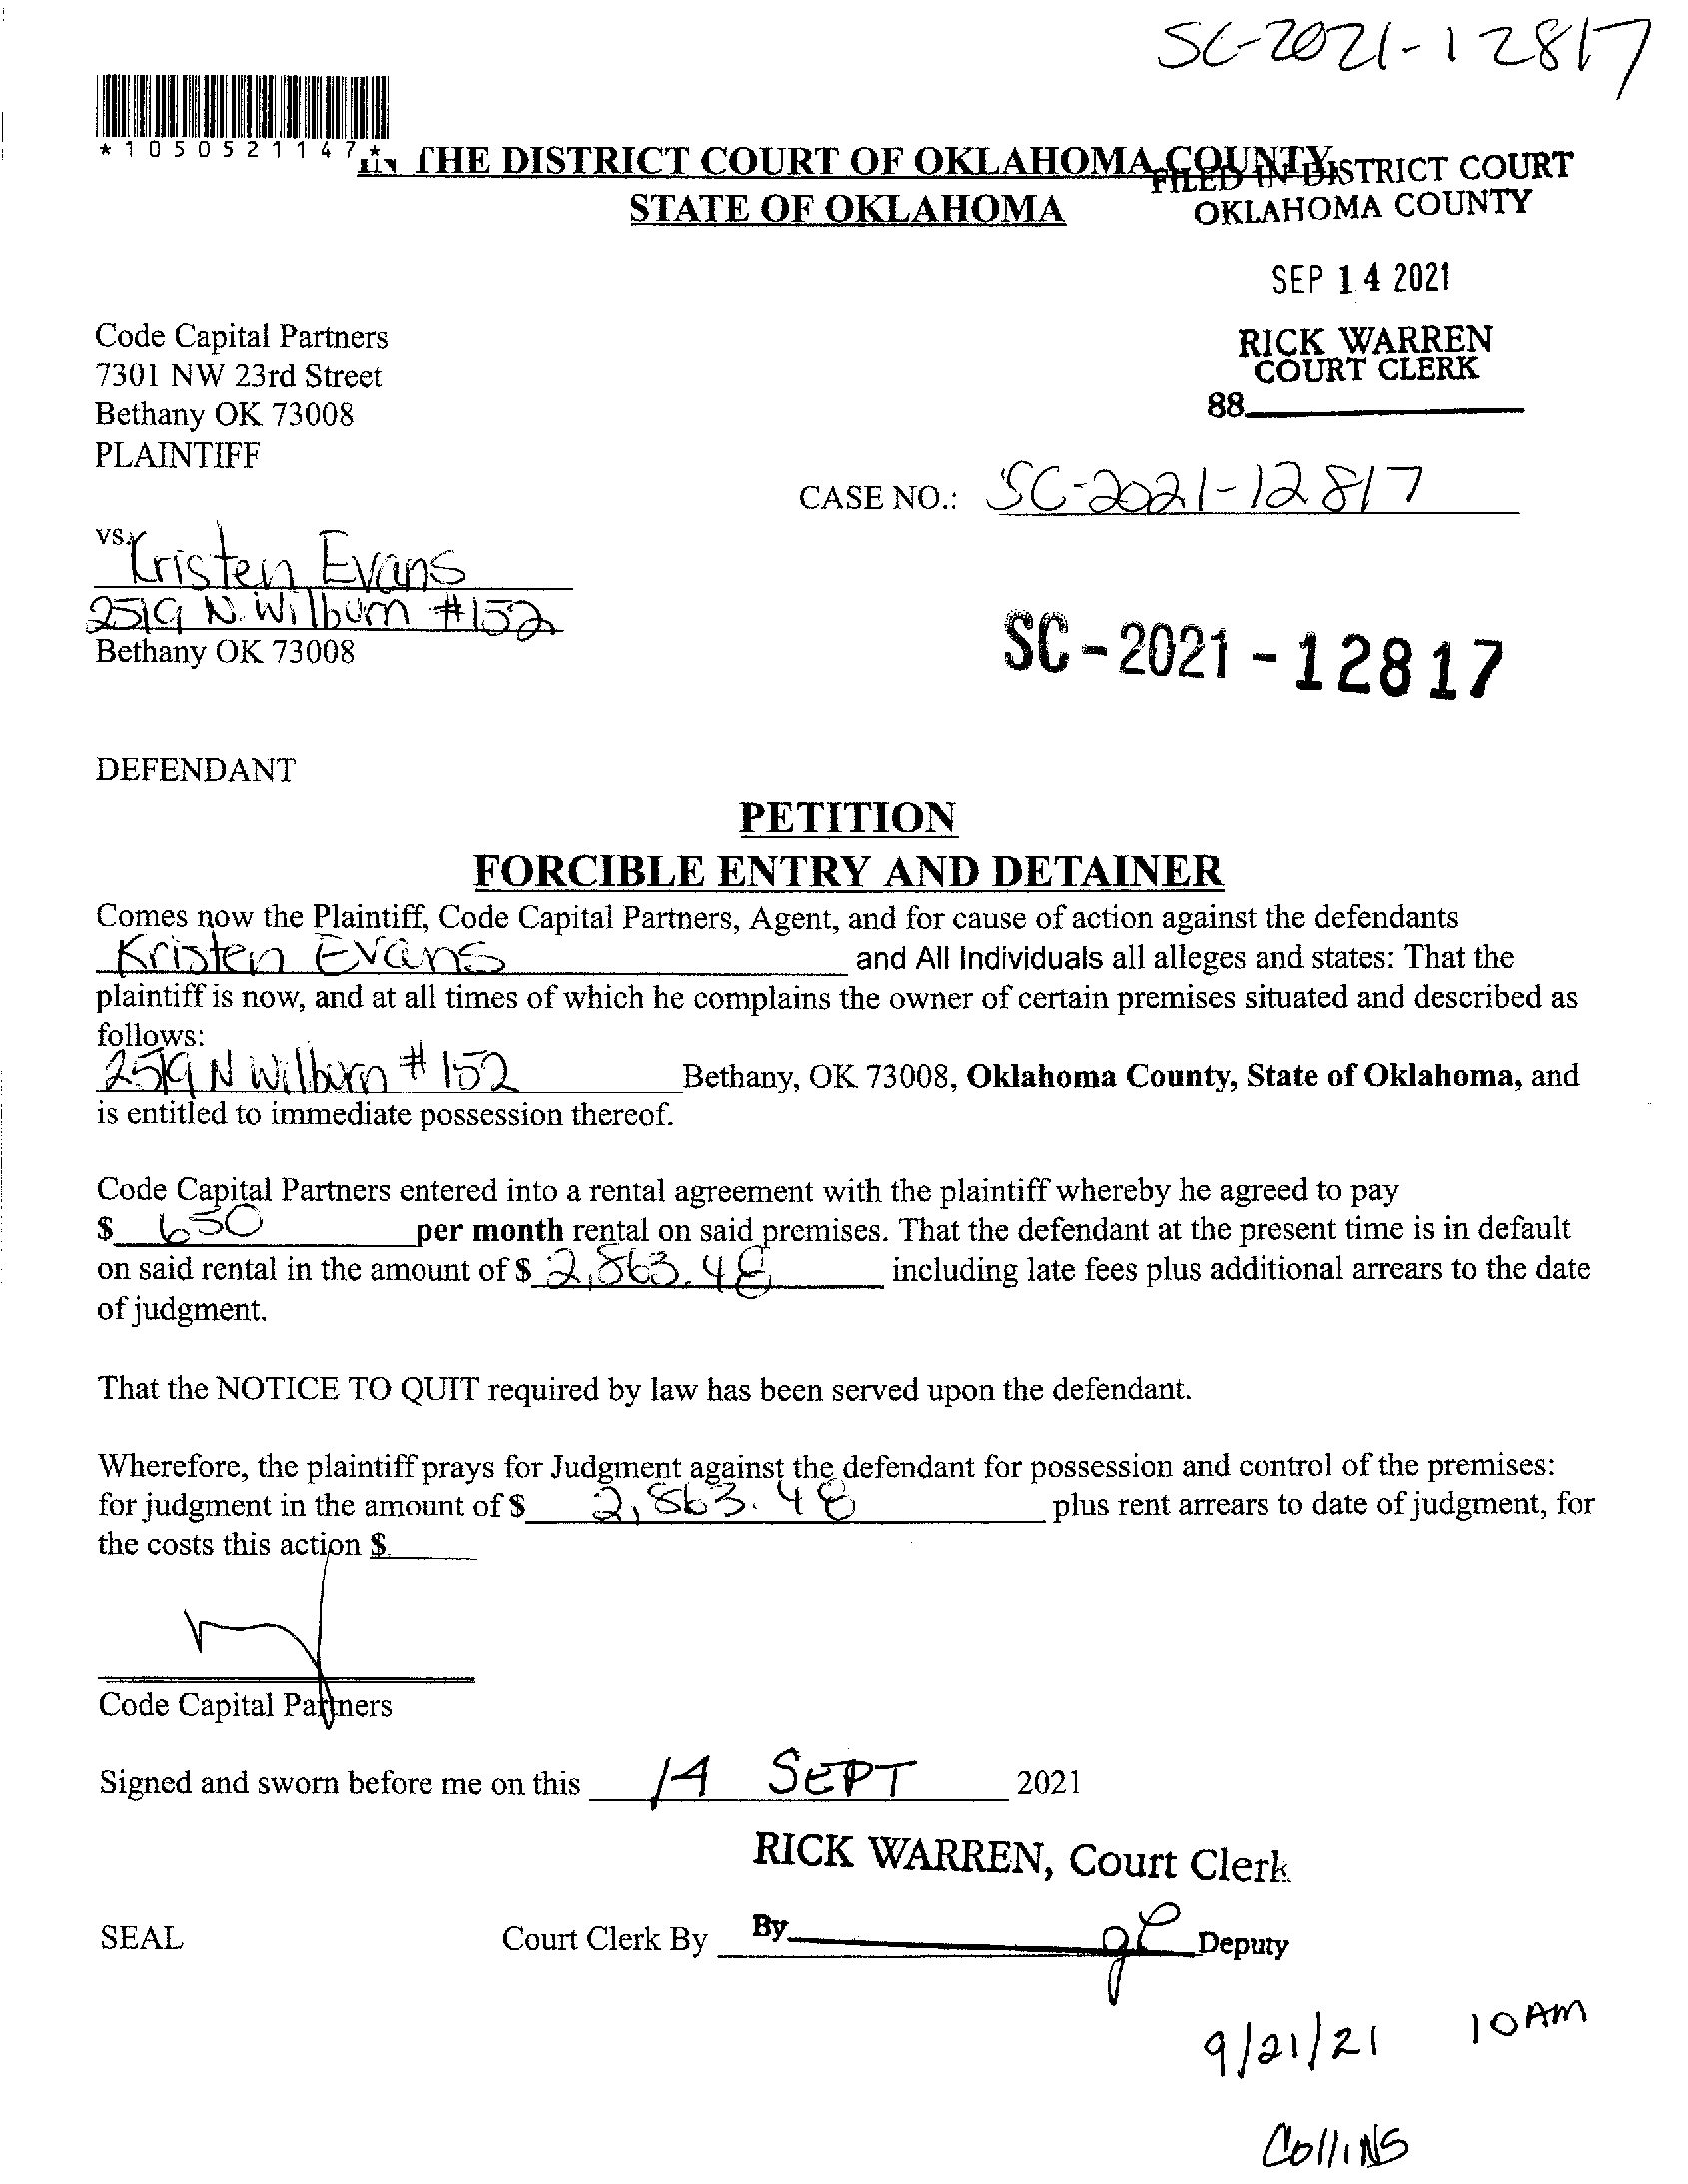 SC-2021-12817
*1050521147*
IN THE DISTRICT COURT OF OKLAHOMA COUNTY
STATE OF OKLAHOMA
FILED IN DISTRICT COURT
OKLAHOMA COUNTY
SEP 14 2021
RICK WARREN
COURT CLERK
88
Code Capital Partners
7301 NW 23rd Street
Bethany OK 73008
PLAINTIFF
CASE NO.: SC-2021-12817
vs.
Kristen Evans
2519 N. Wilburn #152
Bethany OK 73008
SC-2021-12817
DEFENDANT
PETITION
FORCIBLE ENTRY AND DETAINER
Comes now the Plaintiff, Code Capital Partners, Agent, and for cause of action against the defendants
Kristen Evans and All Individuals all alleges and states: That the
plaintiff is now, and at all times of which he complains the owner of certain premises situated and described as
follows:
2519 N Wilburn #152 Bethany, OK 73008, Oklahoma County, State of Oklahoma, and
is entitled to immediate possession thereof.
Code Capital Partners entered into a rental agreement with the plaintiff whereby he agreed to pay
$ 650 per month rental on said premises. That the defendant at the present time is in default
on said rental in the amount of $ 2,863.48 including late fees plus additional arrears to the date
of judgment.
That the NOTICE TO QUIT required by law has been served upon the defendant.
Wherefore, the plaintiff prays for Judgment against the defendant for possession and control of the premises:
for judgment in the amount of $ 2,863.48 plus rent arrears to date of judgment, for
the costs this action $
Code Capital Partners
Signed and sworn before me on this 14 SEPT 2021
RICK WARREN, Court Clerk
SEAL Court Clerk By By Deputy
9/21/21 10AM
Collins